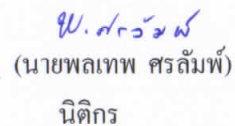 พ. ศรลัมพ์
(นายพลเทพ ศรลัมพ์)
นิติกร